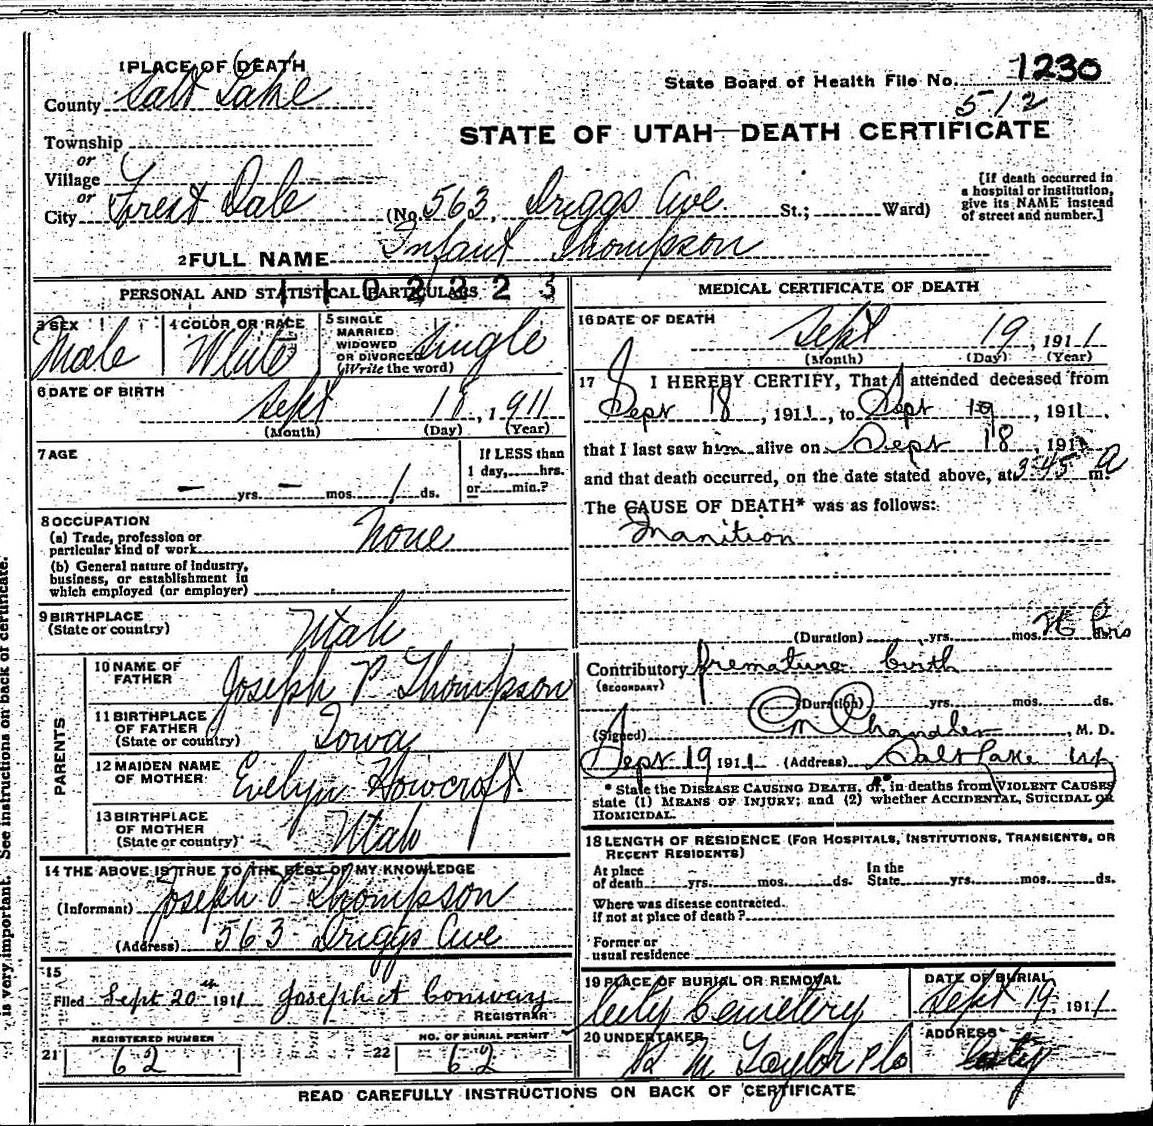 1 PLACE OF DEATH
County Salt Lake
State Board of Health File No. 1230
512
STATE OF UTAH—DEATH CERTIFICATE
Township
or
Village
or
City Forest Dale (No. 563, Driggs Ave St.; Ward)
[If death occurred in
a hospital or institution,
give its NAME instead
of street and number.]
2 FULL NAME Infant Thompson
1102223
PERSONAL AND STATISTICAL PARTICULARS
3 SEX
Male
4 COLOR OR RACE
White
5 SINGLE
MARRIED
WIDOWED
OR DIVORCED
(Write the word)
single
6 DATE OF BIRTH
Sept 18, 1911
(Month) (Day) (Year)
7 AGE
— yrs. — mos. 1 ds.
If LESS than
1 day, hrs.
or min.?
8 OCCUPATION
(a) Trade, profession or
particular kind of work None
(b) General nature of industry,
business, or establishment in
which employed (or employer)
9 BIRTHPLACE
(State or country) Utah
PARENTS
10 NAME OF
FATHER Joseph P Thompson
11 BIRTHPLACE
OF FATHER
(State or country) Iowa
12 MAIDEN NAME
OF MOTHER Evelyn Howcroft
13 BIRTHPLACE
OF MOTHER
(State or country) Utah
14 THE ABOVE IS TRUE TO THE BEST OF MY KNOWLEDGE
(Informant) Joseph P Thompson
(Address) 563 Driggs Ave
15
Filed Sept 20th 1911 Joseph A Conway
REGISTRAR
REGISTERED NUMBER
21 62
NO. OF BURIAL PERMIT
22 62
MEDICAL CERTIFICATE OF DEATH
16 DATE OF DEATH
Sept 19, 1911
(Month) (Day) (Year)
17 I HEREBY CERTIFY, That I attended deceased from
Sept 18, 1911, to Sept 19, 1911,
that I last saw him alive on Sept 18 1911
and that death occurred, on the date stated above, at 3:45 a m.
The CAUSE OF DEATH* was as follows:
Inanition
(Duration) yrs. mos. hrs
Contributory premature birth
(SECONDARY)
(Duration) yrs. mos. ds.
(Signed) Chandler, M. D.
Sept 19 1911 (Address) Salt Lake Ut
* State the DISEASE CAUSING DEATH, or, in deaths from VIOLENT CAUSES
state (1) MEANS OF INJURY; and (2) whether ACCIDENTAL, SUICIDAL OR
HOMICIDAL.
18 LENGTH OF RESIDENCE (FOR HOSPITALS, INSTITUTIONS, TRANSIENTS, OR
RECENT RESIDENTS)
At place
of death yrs. mos. ds.
In the
State yrs. mos. ds.
Where was disease contracted,
if not at place of death?
Former or
usual residence
19 PLACE OF BURIAL OR REMOVAL
City Cemetery
DATE OF BURIAL
Sept 19, 1911
20 UNDERTAKER
Taylor
ADDRESS
City
READ CAREFULLY INSTRUCTIONS ON BACK OF CERTIFICATE
is very important. See instructions on back of certificate.